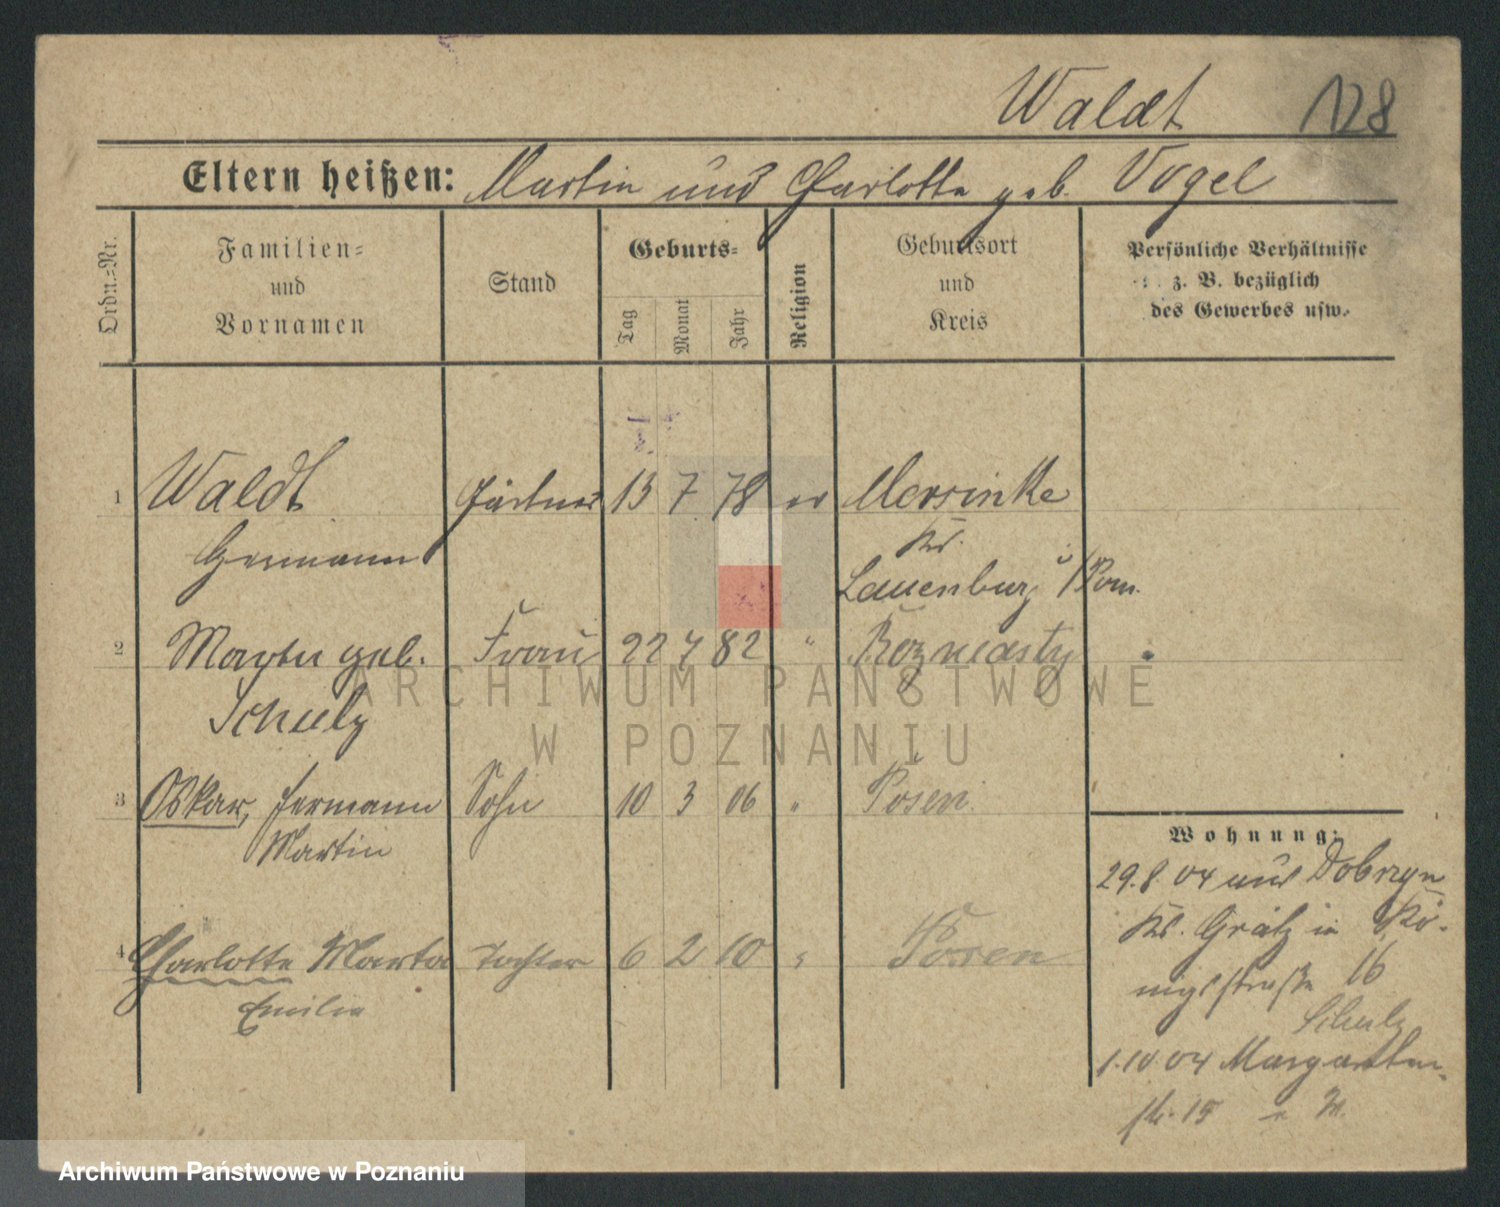 Waldt 128
Eltern heißen: Martin und Charlotte geb. Vogel
Ordn.=Nr.
Familien=
und
Vornamen
Stand
Geburts=
Tag
Monat
Jahr
Religion
Geburtsort
und
Kreis
Persönliche Verhältnisse
z. B. bezüglich
des Gewerbes usw.
1 Waldt Gärtner 13 7 78 ev Mersinke
Hermann
Kr.
Lauenburg i/Pom.
2 Marta geb. Frau 22 7 82 "
Schulz
3 Oskar, Hermann Sohn 10 3 06 " Posen
Martin
4 Charlotte Marta Tochter 6 2 10 " Posen
Emilie
Wohnung:
29.8.04 aus Dobrzyn
Kr. Grätz in Kö-
nigsstraße 16
Schulz
1.10 04 Margareten-
str. 15
ARCHIWUM PAŃSTWOWE
W POZNANIU
Archiwum Państwowe w Poznaniu